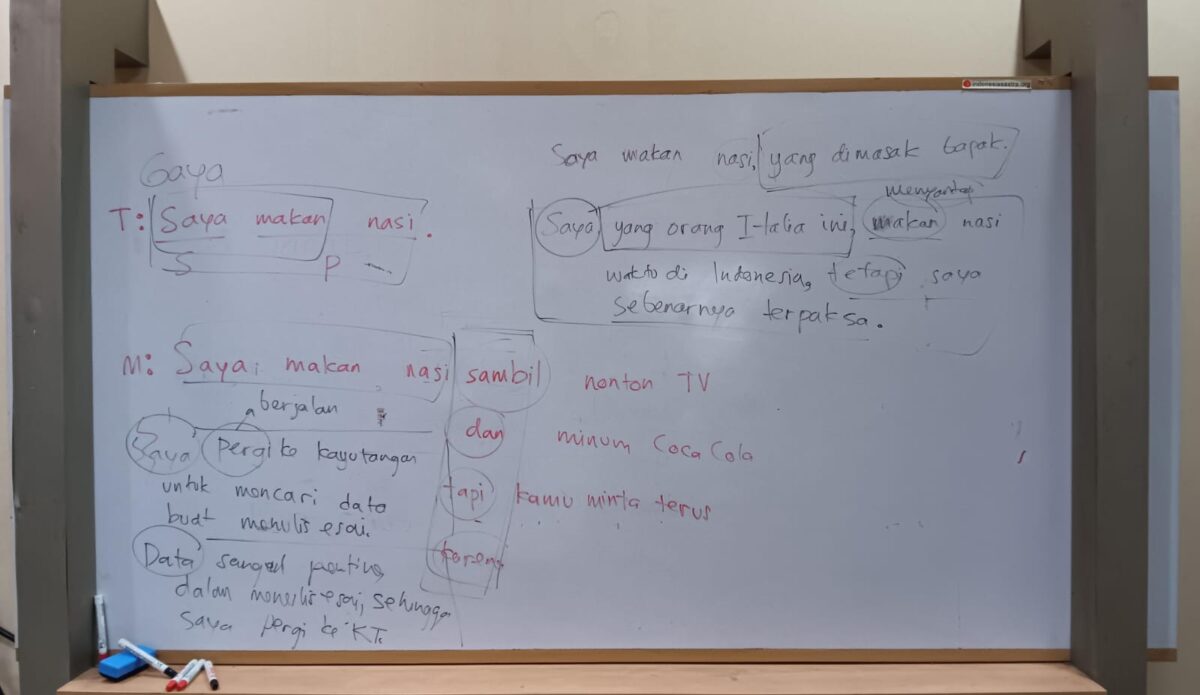 indonesiasastra.org
Gaya
T: Saya makan nasi.
S P
M: Saya makan nasi sambil nonton TV
dan minum Coca Cola
tapi kamu minta terus
karena
berjalan
Saya pergi ke kayutangan
untuk mencari data
buat menulis esai.
Data sangat penting
dalam menulis esai, sehingga
saya pergi ke KT.
Saya makan nasi, yang dimasak bapak.
menyantap
Saya, yang orang Italia ini, makan nasi
waktu di Indonesia, tetapi saya
sebenarnya terpaksa.